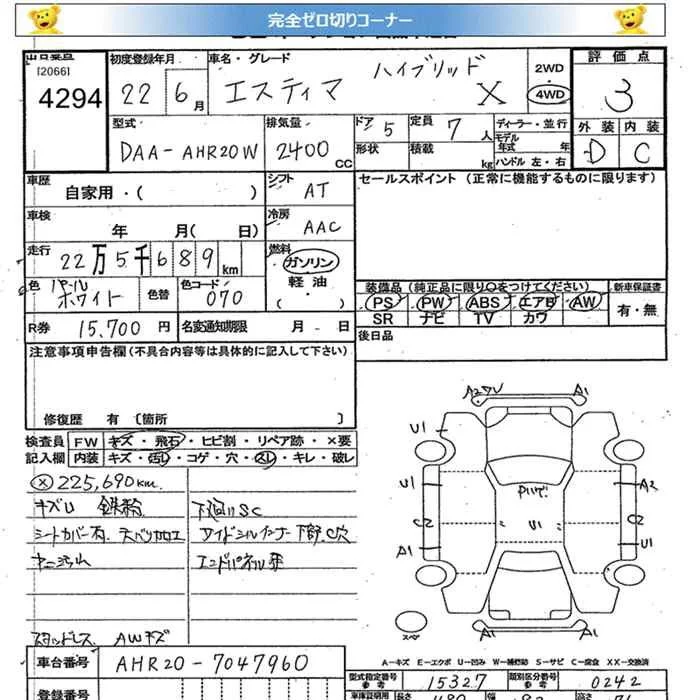 完全ゼロ切りコーナー
出品番号
[2066]
4294
初度登録年月
22 6月
車名・グレード
エスティマ ハイブリッド X
2WD
4WD
評価点
3
型式
DAA-AHR20W
排気量
2400 CC
ドア 5
形状
定員 7人
積載 kg
ディーラー・並行
モデル年式 年
ハンドル 左・右
外装 内装
D C
車歴
自家用・( )
シフト
AT
セールスポイント (正常に機能するものに限ります)
車検
年 月( 日)
冷房
AAC
走行
22万5千689km
燃料
ガソリン
軽油
・( )
色 パール
ホワイト
色替
色コード
070
装備品(純正品に限り○をつけてください)
新車保証書
PS PW ABS エアB AW
SR ナビ TV カワ
有・無
R券 15,700円
名変通知期限 月 - 日
後日品
注意事項申告欄(不具合内容等は具体的に記入して下さい)
修復歴 有 〔箇所 〕
検査員
記入欄
FW キズ・飛石・ヒビ割・リペア跡・×要
内装 キズ・汚レ・コゲ・穴・スレ・キレ・破レ
ⓧ225,690km
キズU
下廻りSC
シートカバー有
エンドパネル
スタッドレス AWキズ
A2 U A1
U1
U1 A2
C2 C2
A1 U1
U1
A1 A1
スペア
A-キズ E-エクボ U-凹み W-補修跡 S-サビ C-腐食 XX-交換済
車台番号 AHR20-7047960
型式指定番号
参考
15327
類別区分番号
参考
0242
車庫証明用
長さ
480
幅
高さ